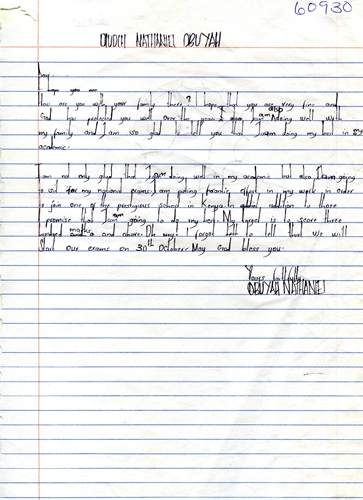 60930
ODUOR NATHANIEL OBUYAH
Hey
I hope you are
How are you with your family there? I hope that you are very fine and
God has protected you well over the years. I am also doing well with
my family and I am so glad to tell you that I am doing my best in my
academic.
I am not only glad that I am doing well in my academic but also I am going
to sit for my national exams. I am putting effort in my work in order
to join one of the prestigious school in Kenya. In addition to those
I promise that I am going to do my best. My target is to score three
hundred marks and above. Oh my! I forgot to tell that We will
Start our exams on 30th October. May God bless you.
Yours faithfully
OBUYAH NATHANIEL